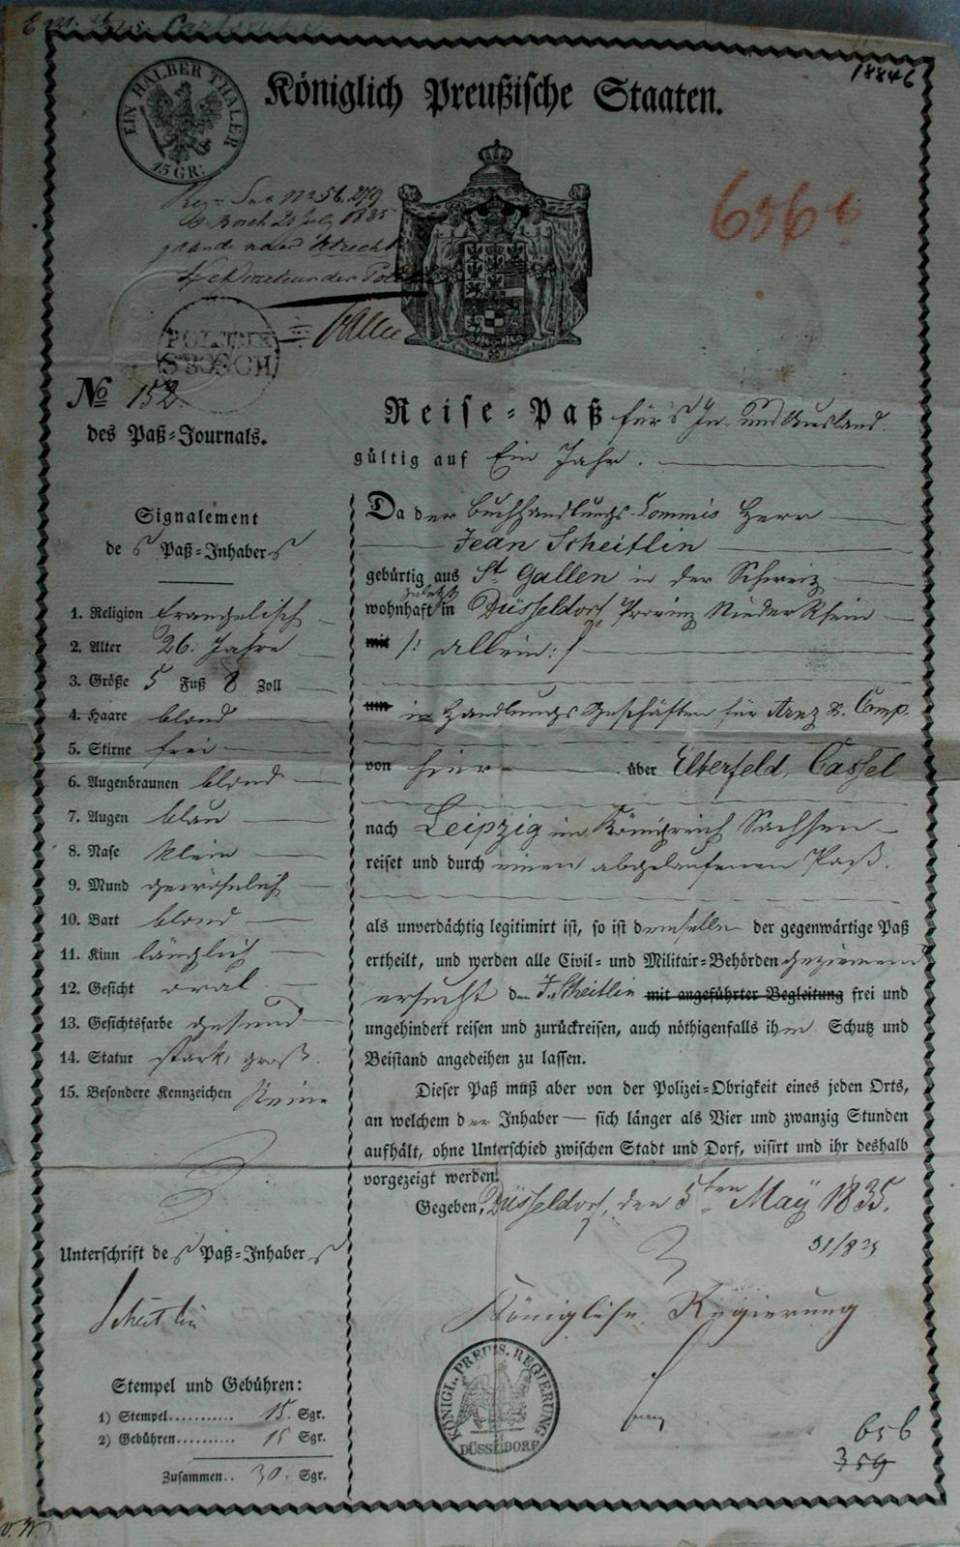 18846
EIN HALBER THALER
15 GR:
Königlich Preußische Staaten.
1835
POLITIE
S'BOSCH
No 152.
des Paß-Journals.
Reise-Paß für's In- und Ausland.
gültig auf Ein Jahr.
Signalement
des Paß-Inhabers
1. Religion Evangelisch
2. Alter 26. Jahre
3. Größe 5 Fuß 8 Zoll
4. Haare blond
5. Stirne frei
6. Augenbraunen blond
7. Augen blau
8. Nase klein
9. Mund gewöhnlich
10. Bart blond
11. Kinn länglich
12. Gesicht oval
13. Gesichtsfarbe gesund
14. Statur stark, groß.
15. Besondere Kennzeichen Keine
Unterschrift des Paß-Inhabers
Scheitlin
Stempel und Gebühren:
1) Stempel........... 15. Sgr.
2) Gebühren.......... 15 Sgr.
Zusammen.. 30. Sgr.
Da der Buchhandlungs-Commis Herr
Jean Scheitlin
gebürtig aus St. Gallen in der Schweiz
zuletzt
wohnhaft in Düsseldorf, Provinz Nieder Rhein
mit /: allein :/
um in Handlungs Geschäften für Arnz & Comp.
von hier über Elberfeld, Cassel
nach Leipzig im Königreich Sachsen
reiset und durch einen abgelaufenen Paß.
als unverdächtig legitimirt ist, so ist demselben der gegenwärtige Paß
ertheilt, und werden alle Civil- und Militair-Behörden geziemend
ersucht den J. Scheitlin mit angeführter Begleitung frei und
ungehindert reisen und zurückreisen, auch nöthigenfalls ihm Schutz und
Beistand angedeihen zu lassen.
Dieser Paß muß aber von der Polizei-Obrigkeit eines jeden Orts,
an welchem der Inhaber — sich länger als Vier und zwanzig Stunden
aufhält, ohne Unterschied zwischen Stadt und Dorf, visirt und ihr deshalb
vorgezeigt werden.
Gegeben, Düsseldorf, den 5ten May 1835.
Königliche Regierung
KÖNIGL. PREUS. REGIERUNG
DÜSSELDORF
656
359